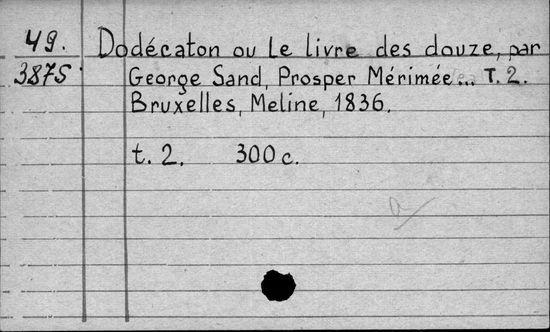 49. Dodécaton ou Le livre des douze, par
3875 George Sand, Prosper Mérimée... T. 2.
Bruxelles, Meline, 1836.
t. 2. 300 c.